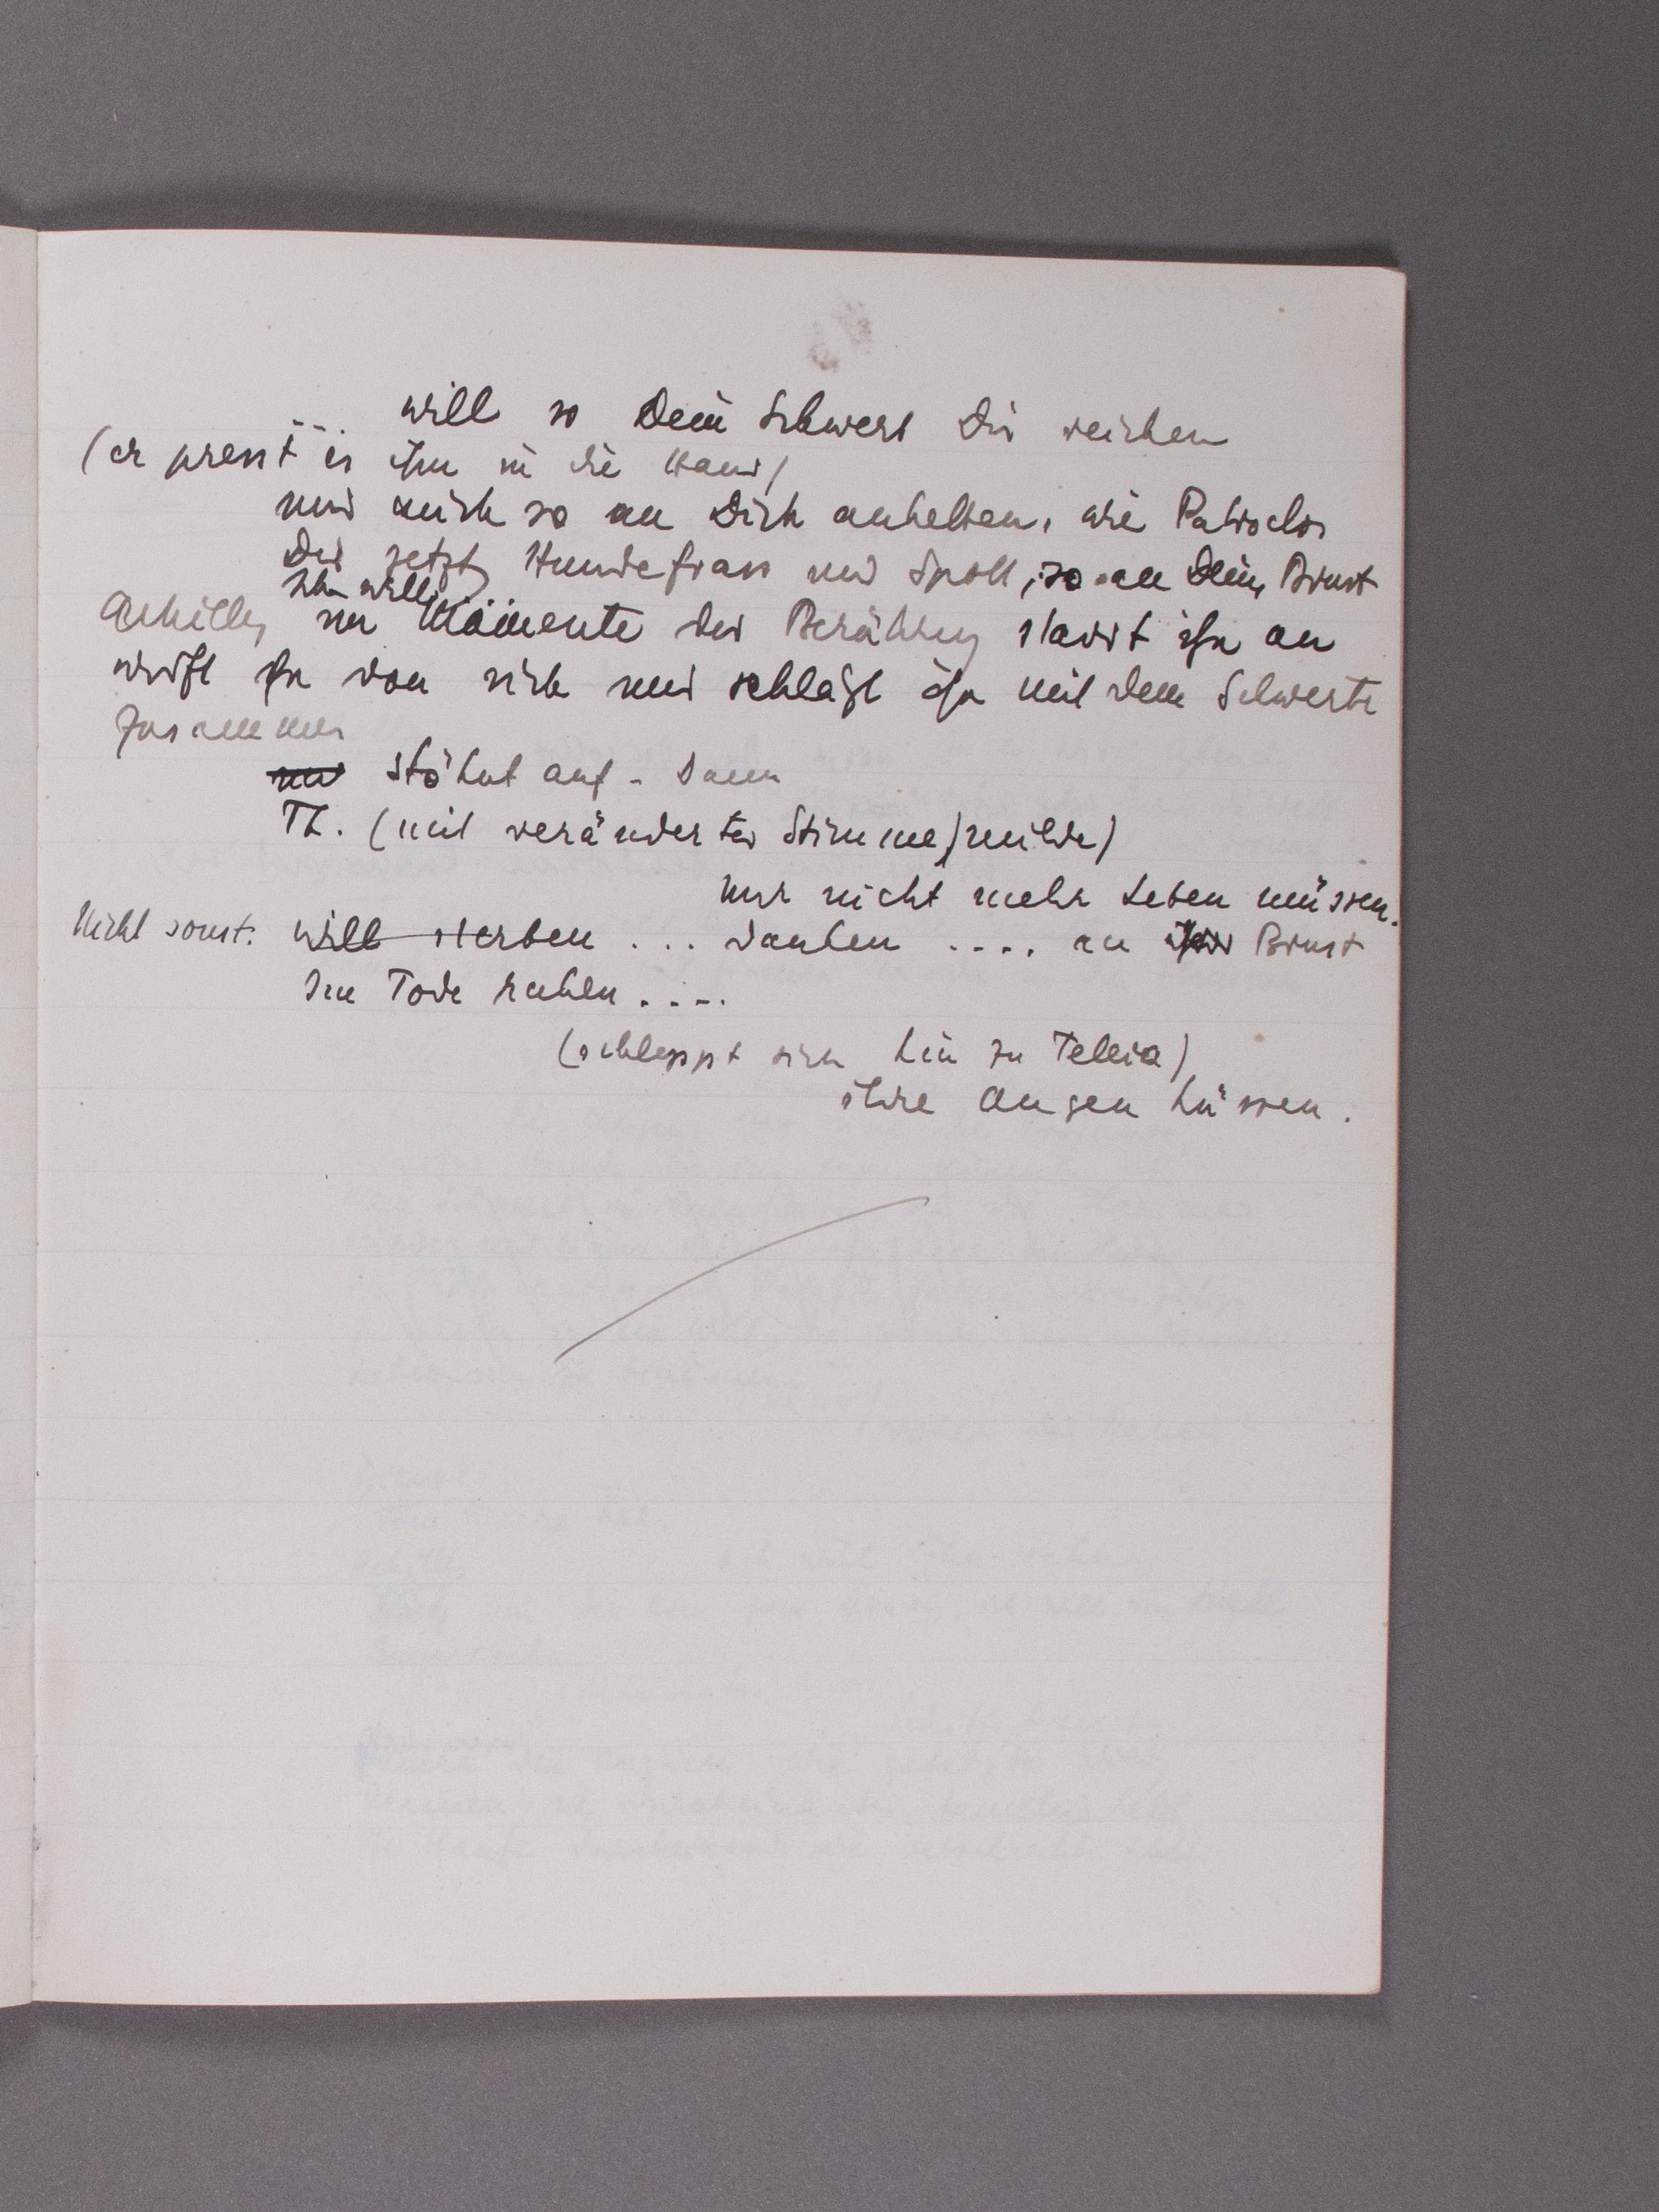 ... will so Dein Schwert Dir reichen
(er presst es ihm in die Hand)
und mich so an Dich anhalten, wie Patroclos
Der jetzt Hundefrass und Spott, so an Deine Brust
Ich will
Achilles im Momente der Berührung starrt ihn an
wirft ihn von sich und schlägt ihn mit dem Schwerte
zusammen
und stöhnt auf - Dann
Th. (mit veränderter Stimme, milde)
nur nicht mehr Leben müssen.
Nicht sonst: will sterben ... danken .... an ihrer Brust
Im Tode ruhen ....
(schleppt sich hin zu Tellia)
ihre Augen küssen.